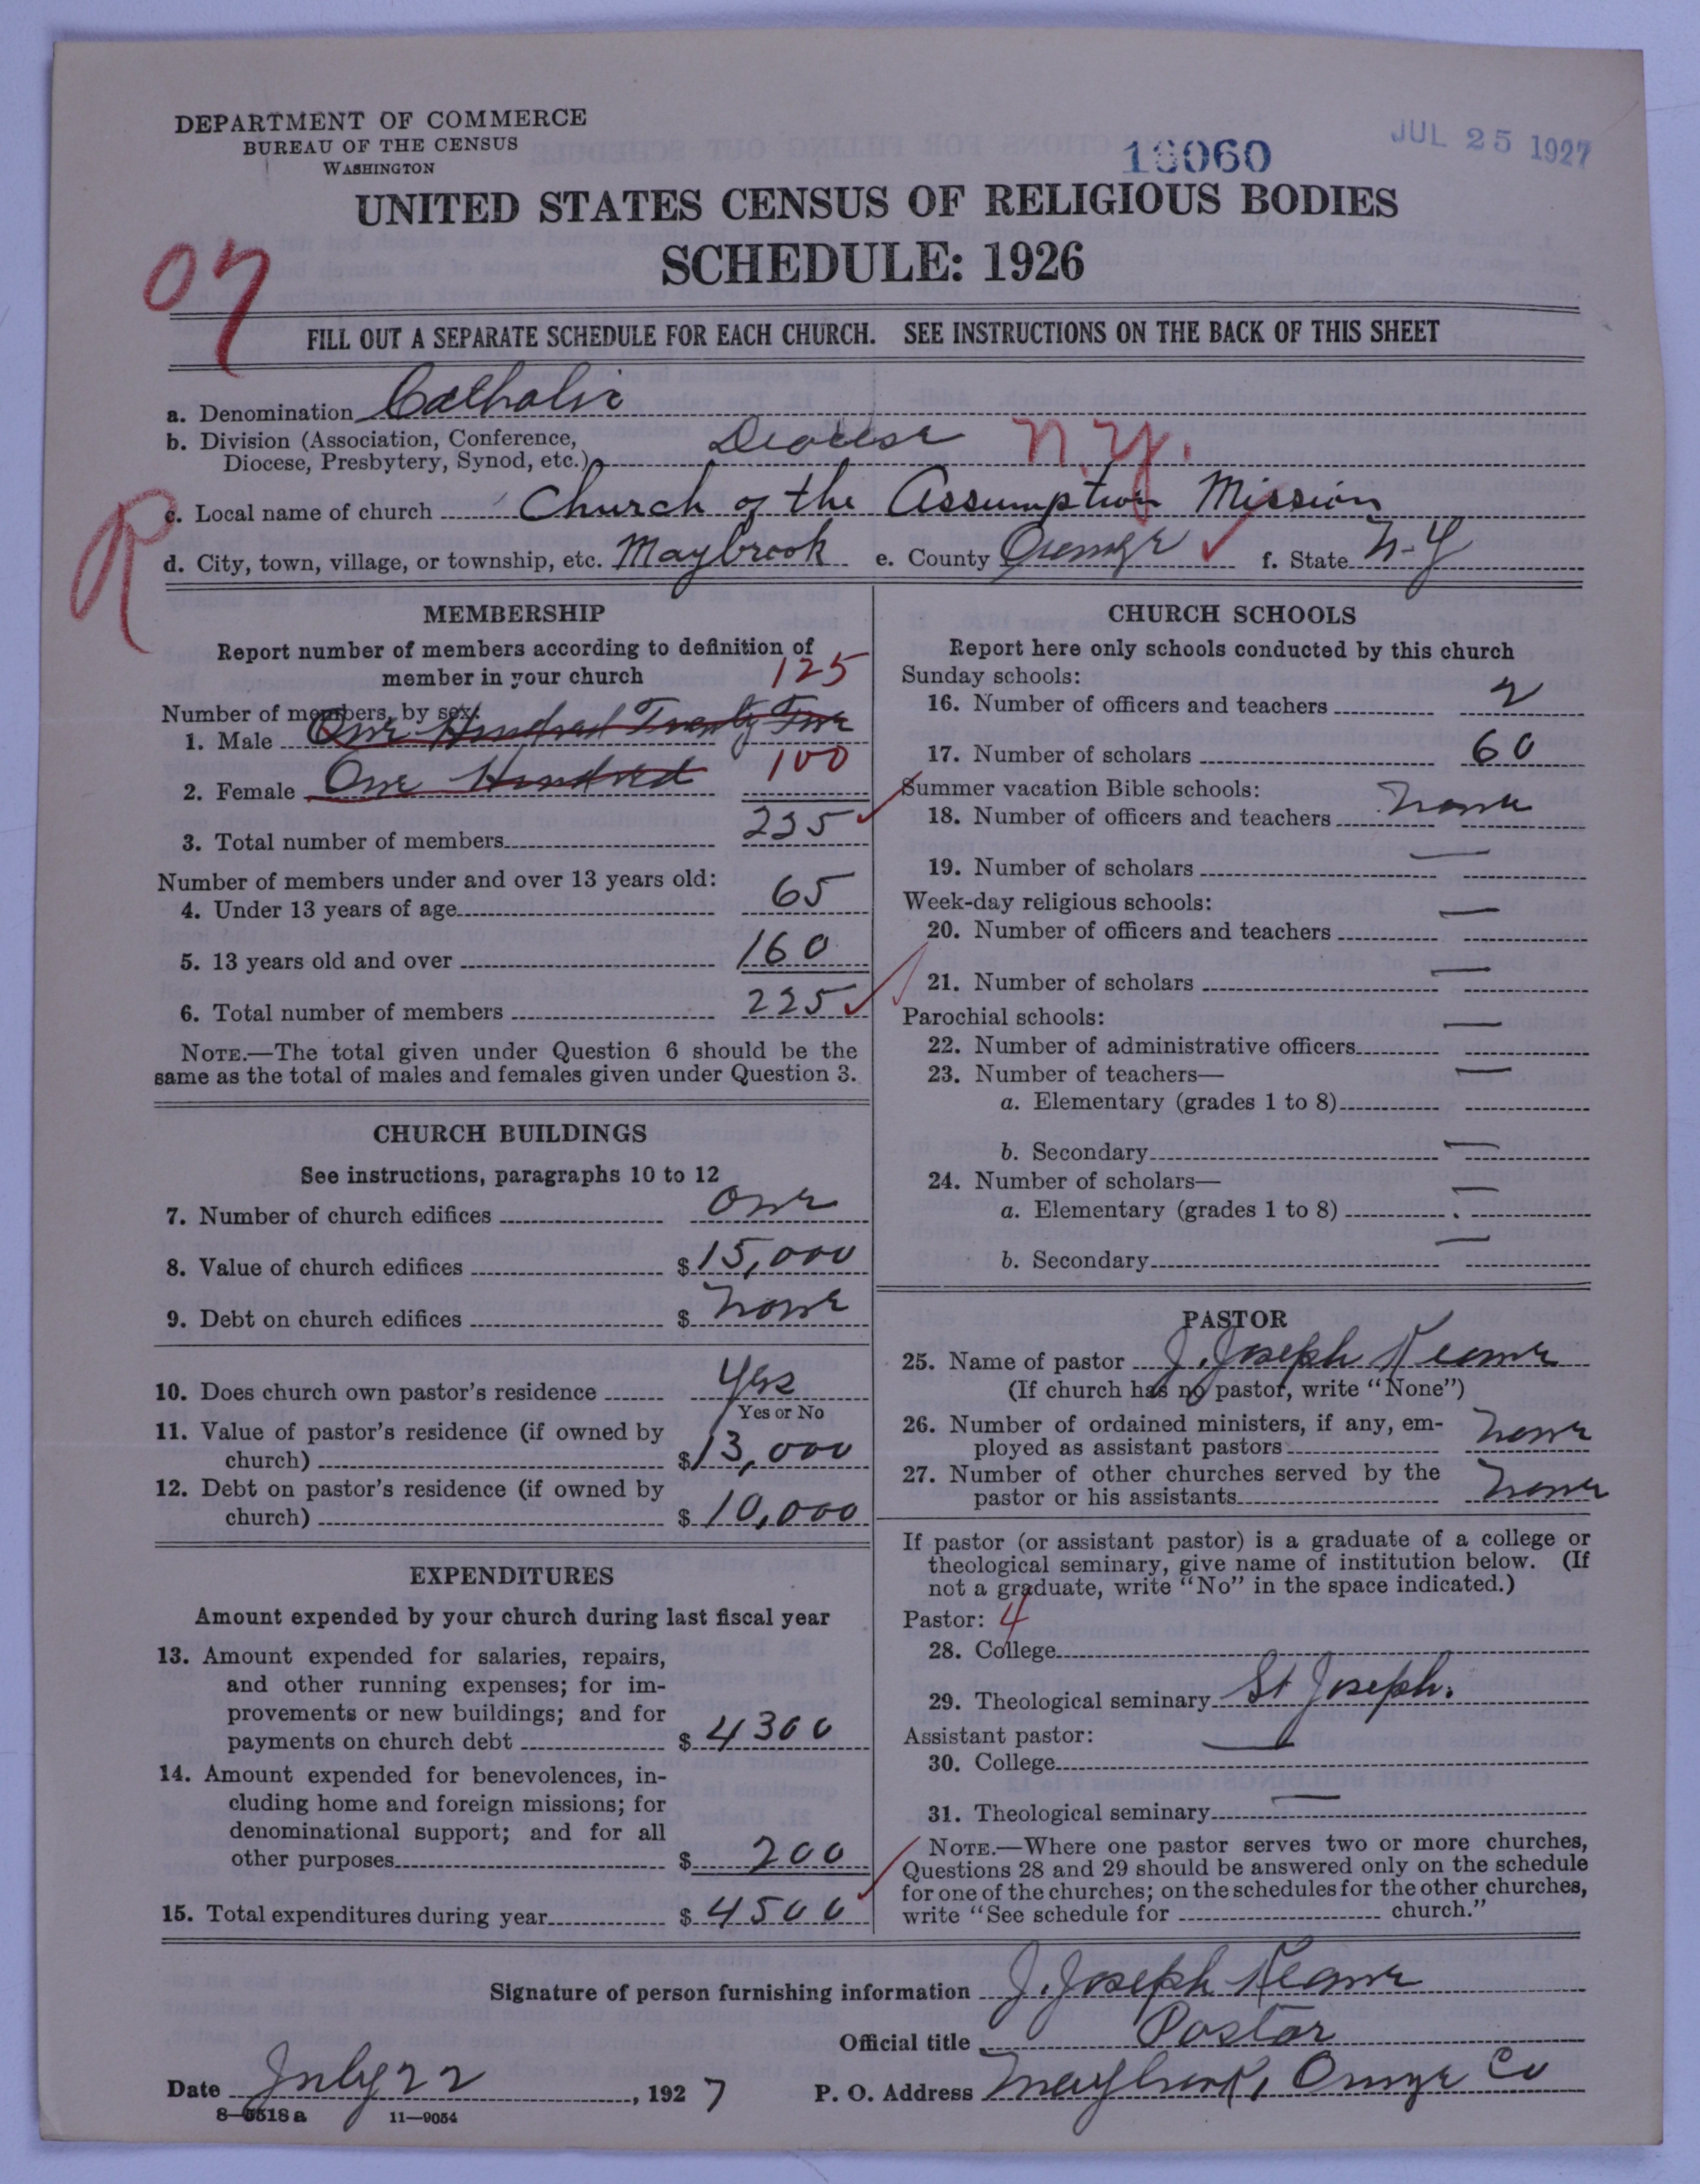 DEPARTMENT OF COMMERCE
BUREAU OF THE CENSUS
WASHINGTON
JUL 25 1927
UNITED STATES CENSUS OF RELIGIOUS BODIES
SCHEDULE: 1926
FILL OUT A SEPARATE SCHEDULE FOR EACH CHURCH. SEE INSTRUCTIONS ON THE BACK OF THIS SHEET
a. Denomination Catholic
b. Division (Association, Conference, Diocese, Presbytery, Synod, etc.) Diocese N.Y.
R
c. Local name of church Church of the Assumption Mission
d. City, town, village, or township, etc. Maybrook e. County Orange f. State N-Y
MEMBERSHIP
Report number of members according to definition of
member in your church
Number of members, by sex:
1. Male One Hundred Twenty Five 125
2. Female One Hundred 100
3. Total number of members 225
Number of members under and over 13 years old:
4. Under 13 years of age 65
5. 13 years old and over 160
6. Total number of members 225
NOTE.—The total given under Question 6 should be the
same as the total of males and females given under Question 3.
CHURCH BUILDINGS
See instructions, paragraphs 10 to 12
7. Number of church edifices One
8. Value of church edifices $15,000
9. Debt on church edifices $ None
10. Does church own pastor's residence Yes
Yes or No
11. Value of pastor's residence (if owned by
church) $13,000
12. Debt on pastor's residence (if owned by
church) $10,000
EXPENDITURES
Amount expended by your church during last fiscal year
13. Amount expended for salaries, repairs,
and other running expenses; for im-
provements or new buildings; and for
payments on church debt $ 4300
14. Amount expended for benevolences, in-
cluding home and foreign missions; for
denominational support; and for all
other purposes $ 200
15. Total expenditures during year $ 4500
CHURCH SCHOOLS
Report here only schools conducted by this church
Sunday schools:
16. Number of officers and teachers 2
17. Number of scholars 60
Summer vacation Bible schools:
18. Number of officers and teachers None
19. Number of scholars —
Week-day religious schools:
20. Number of officers and teachers —
21. Number of scholars —
Parochial schools:
22. Number of administrative officers —
23. Number of teachers—
a. Elementary (grades 1 to 8) —
b. Secondary —
24. Number of scholars—
a. Elementary (grades 1 to 8) —
b. Secondary —
PASTOR
25. Name of pastor J. Joseph Keane
(If church has no pastor, write "None")
26. Number of ordained ministers, if any, em-
ployed as assistant pastors None
27. Number of other churches served by the
pastor or his assistants None
If pastor (or assistant pastor) is a graduate of a college or
theological seminary, give name of institution below. (If
not a graduate, write "No" in the space indicated.)
Pastor: 4
28. College
29. Theological seminary St Joseph.
Assistant pastor:
30. College —
31. Theological seminary —
NOTE.—Where one pastor serves two or more churches,
Questions 28 and 29 should be answered only on the schedule
for one of the churches; on the schedules for the other churches,
write "See schedule for church."
Signature of person furnishing information J. Joseph Keane
Official title Pastor
Date July 22, 1927 P. O. Address Maybrook, Orange Co
8—5518 a 11—9054